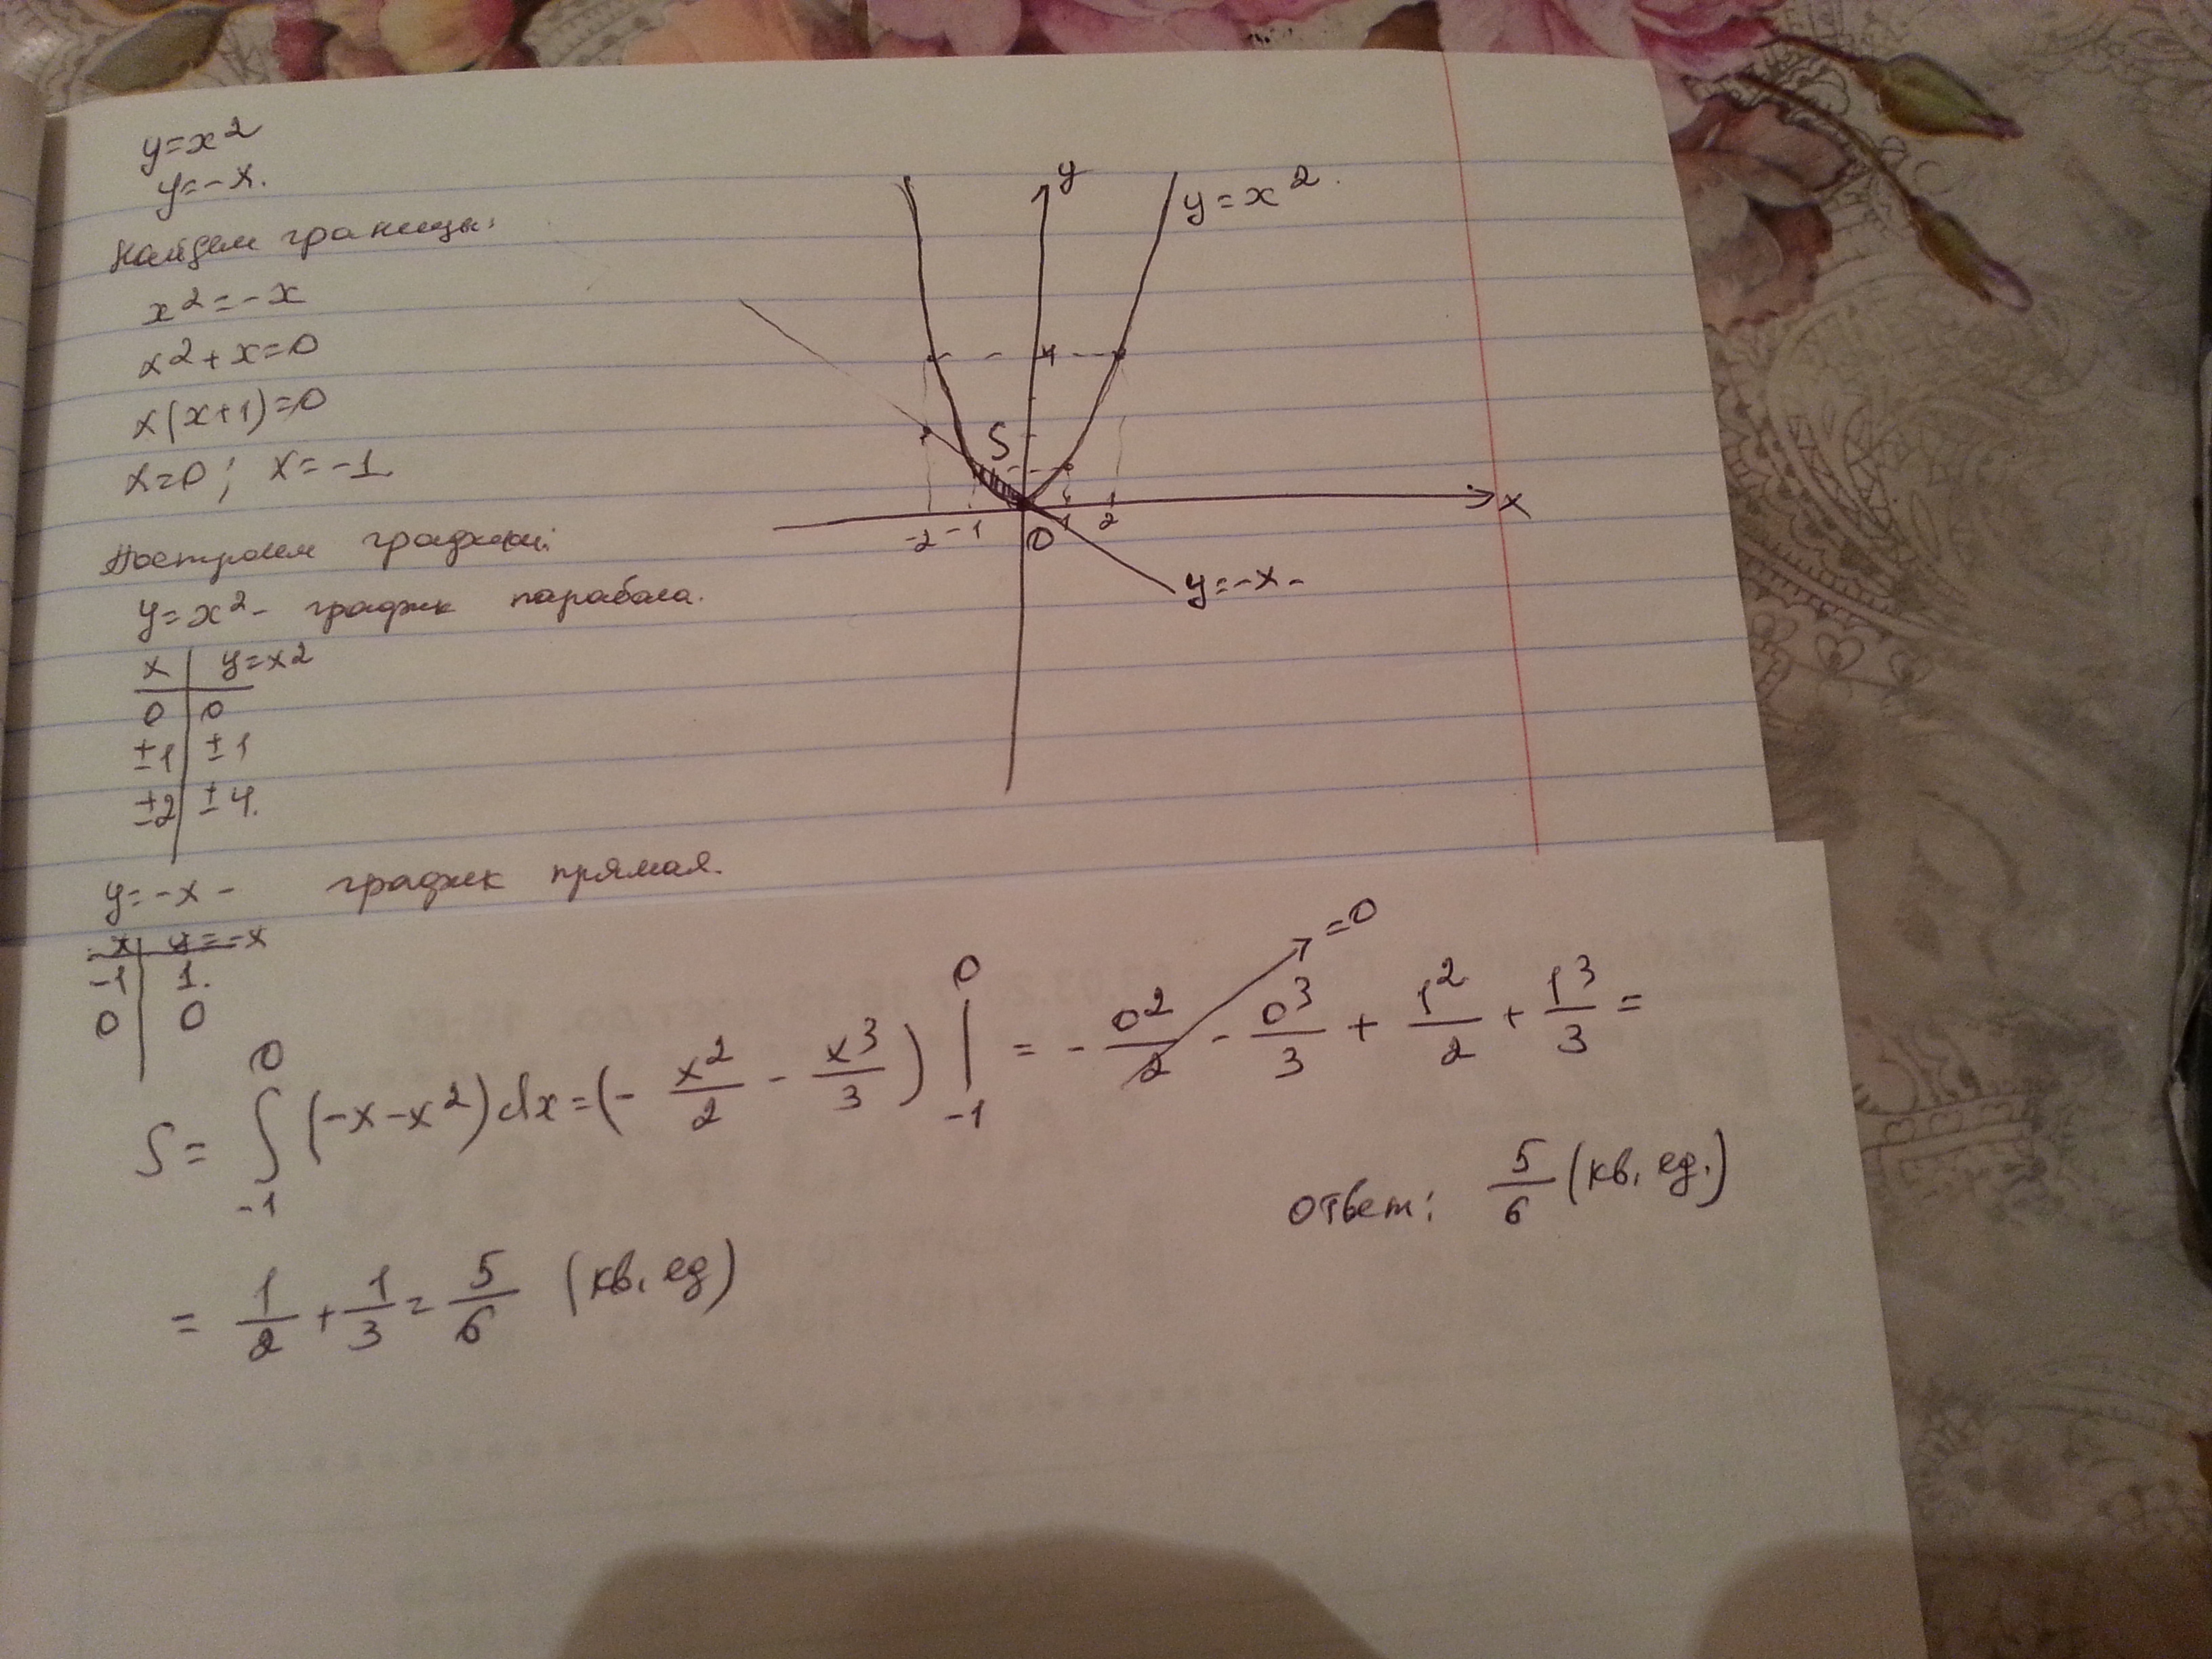 y=x²
y=-x.
Найдем границы:
x²=-x
x²+x=0
x(x+1)=0
x=0; x=-1.
Построим графики:
y=x² - график парабола.
x | y=x2
0 | 0
±1 | ±1
±2 | ±4.
y=-x - график прямая.
x | y=-x
-1 | 1.
0 | 0
y
y=x².
4
S
-2 -1 0 1 2
x
y=-x-
S = ∫₋₁⁰ (-x-x²)dx = (- x²/2 - x³/3) |₋₁⁰ = - 0²/2 - 0³/3 + 1²/2 + 1³/3 =
=0
= 1/2 + 1/3 = 5/6 (кв. ед)
Ответ: 5/6 (кв. ед.)